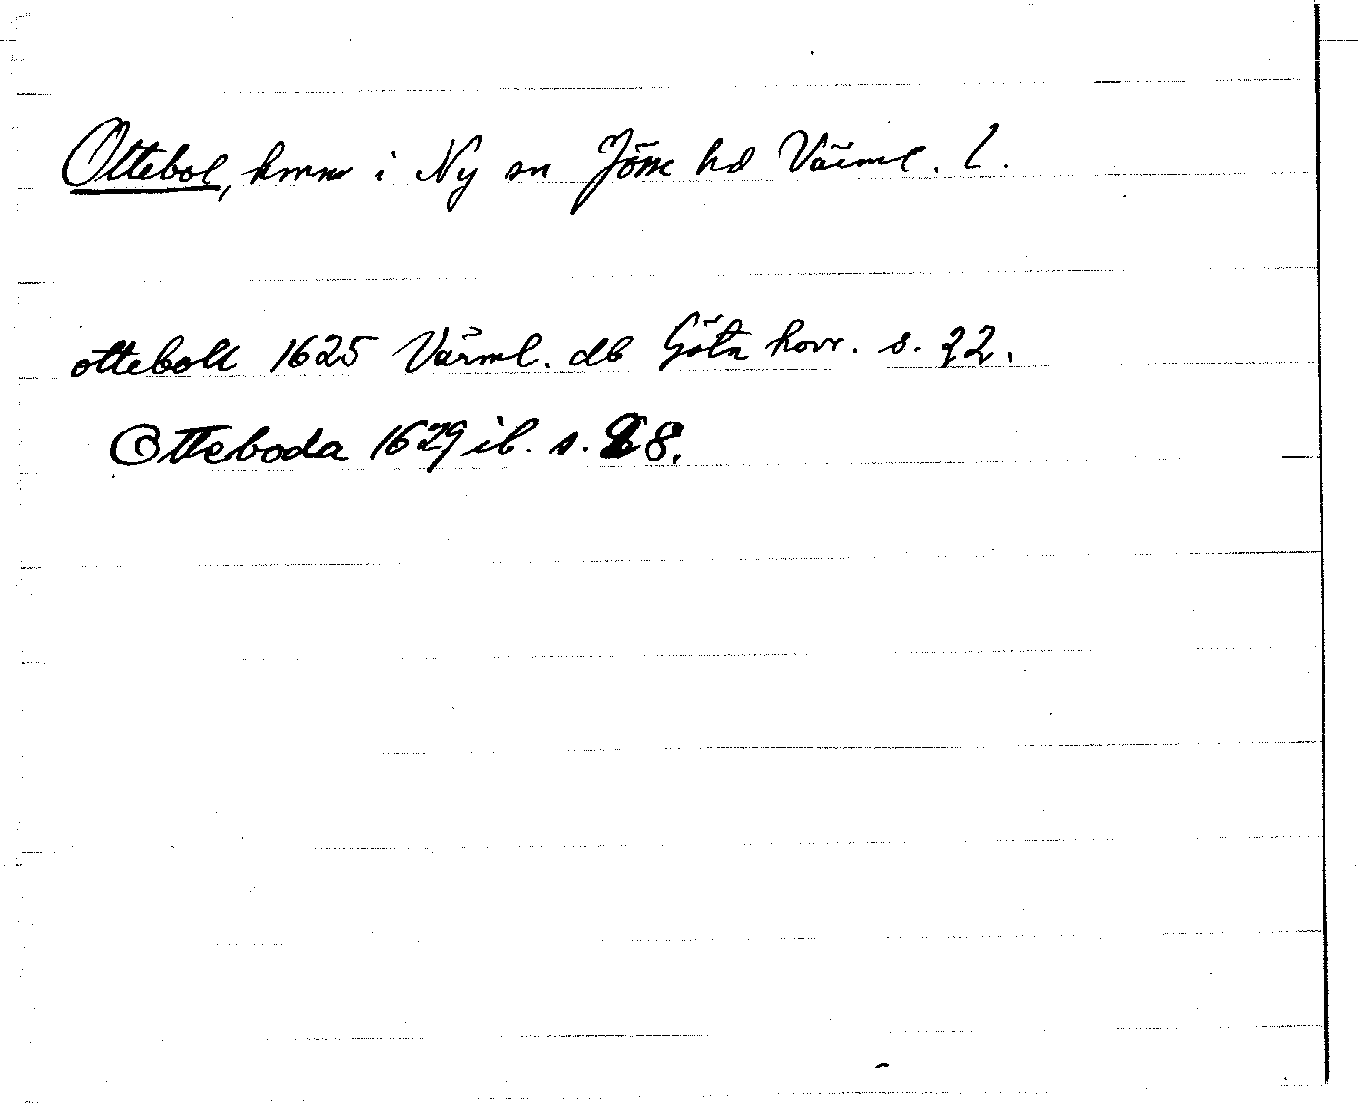 Ottebol, hmn i Ny sn Jösse hd Värml. l.
otteboll 1625 Värml. db Göta hovr. s. 22.
Otteboda 1629 ib. s. 8.